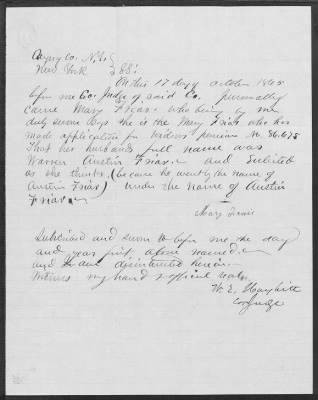 Co. N.Y.
New York } SS:
On this 17 day of October 1865
before me Co. Judge of said Co. personally
came Mary Friar who being by me
duly sworn says she is the Mary Friar who has
made application for widows pension No. 86.678
That her husbands full name was
Warren Austin Friar and Enlisted
as she thinks (because he went by the name of
Austin Friar) under the name of Austin
Friar
Mary Friar
Subscribed and sworn to before me the day
and year first above named
and I am disinterested herein
Witness my hand & official seal
W. E.
Co Judge